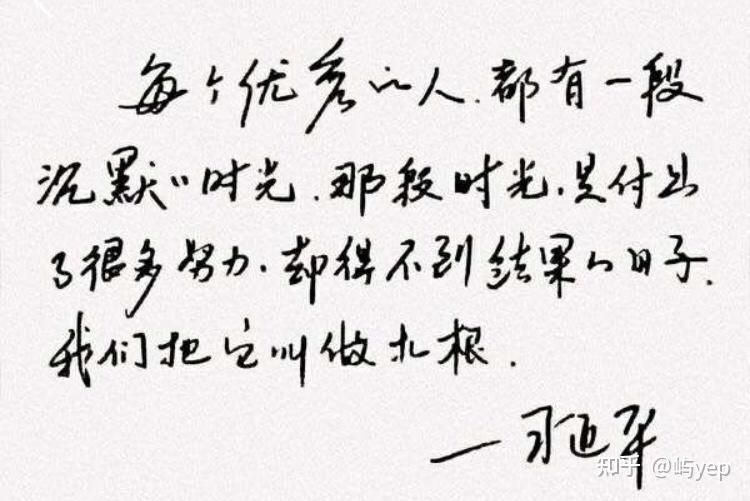 每个优秀的人.都有一段
沉默的时光.那段时光.是付出
了很多努力.却得不到结果的日子.
我们把它叫做扎根.
——习近平
知乎 @屿yep